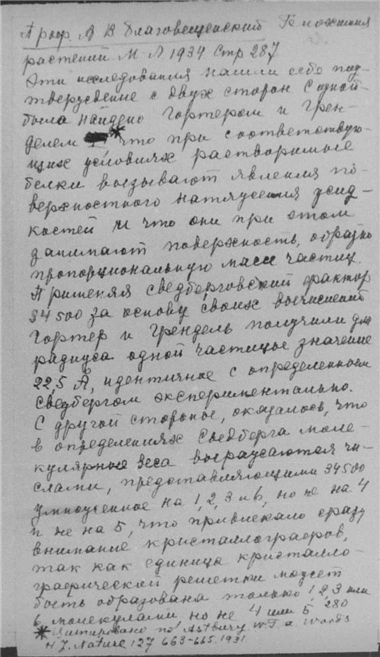 Проф А В Благовещенский Биохимия
растений М Л 1934 стр 287
Эти исследования нашли себе под
тверждение с двух сторон С одной
было найдено Гортером и Грен-
делем *, что при соответствую-
щих условиях растворимые
белки вызывают явления по-
верхностного натяжения жид-
костей и что они при этом
занимают поверхность, обратно
пропорциональную массе частиц.
Применяя сведберговский фактор
34500 за основу своих вычислений
Гортер и Грендель получили для
радиуса одной частицы значение
22,5 Å, идентичное с определенным
Сведбергом экспериментально.
С другой стороны, оказалось, что
в определениях Сведберга моле-
кулярные веса выражаются чи-
слами, представляющими 34500
умноженное на 1, 2, 3 и 6, но не на 4
и не на 5, что привлекало сразу
внимание кристаллографов,
так как единица кристалло-
графической решетки может
быть образована только 1, 2, 3 или
6 молекулами, но не 4 или 5 280
* Цитировано по Astbury W T a Woods
H J. Nature 127 663-665. 1931